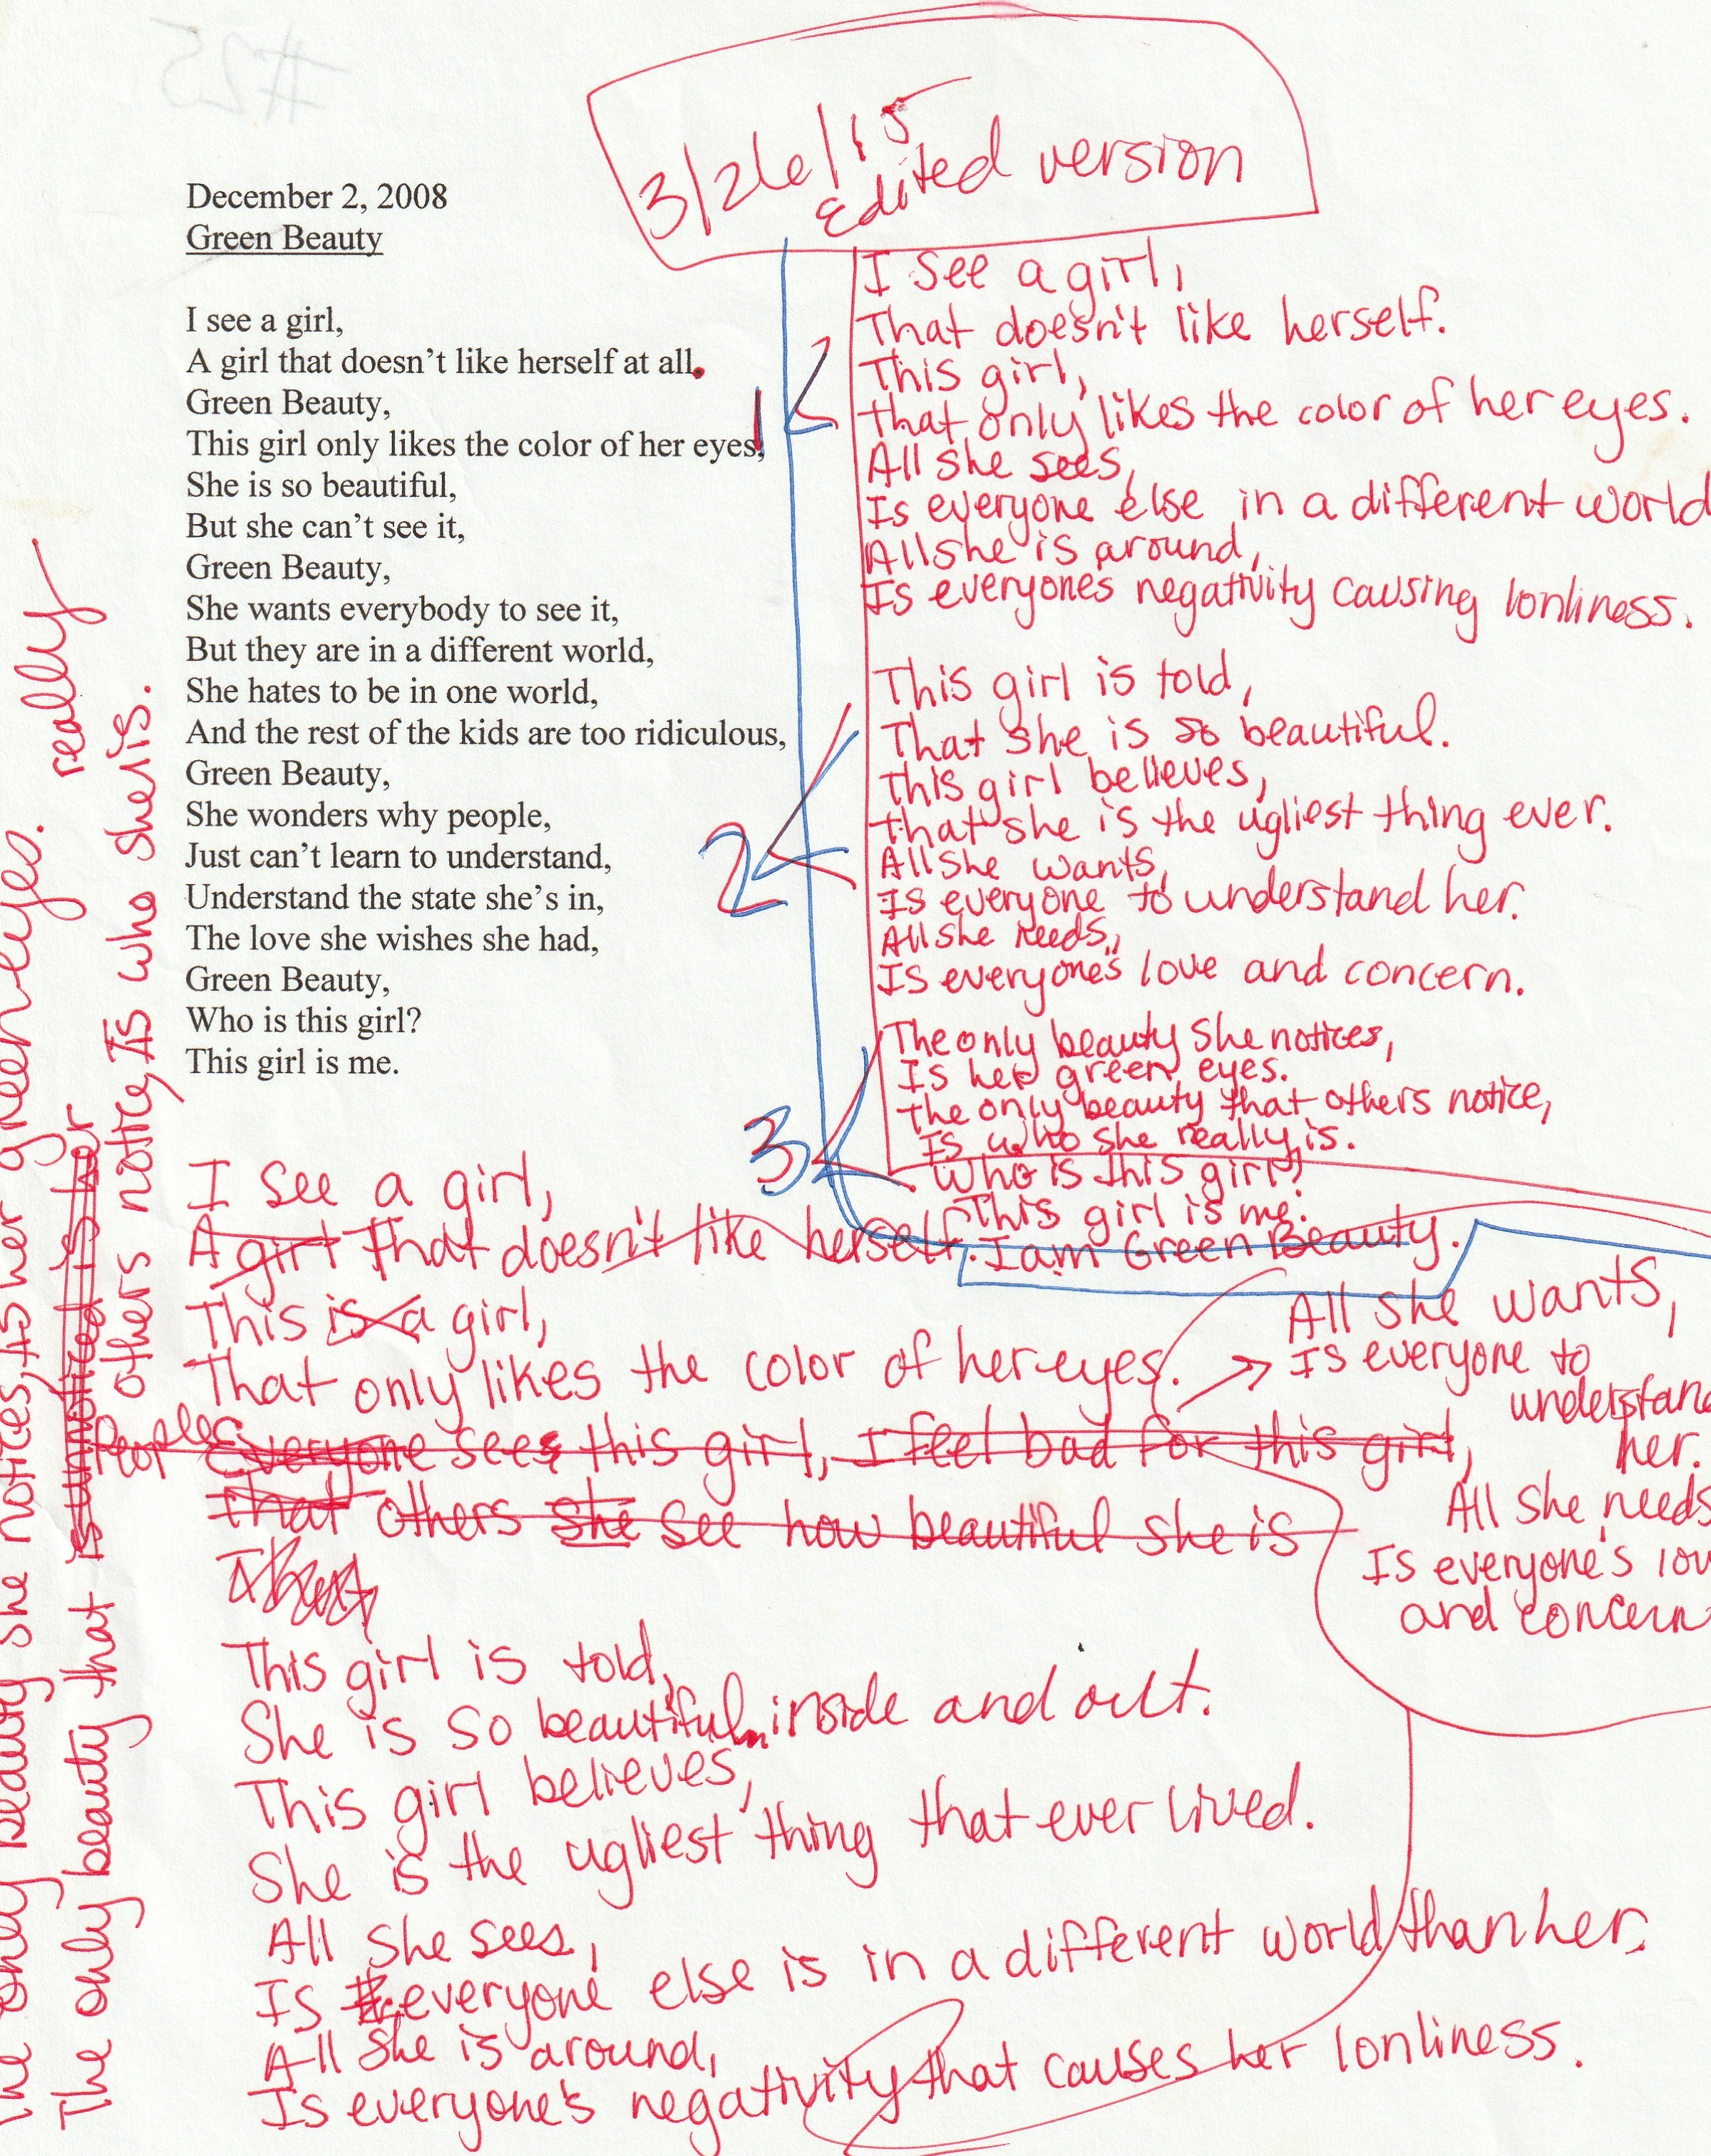 #25
3/26/15
Edited version
December 2, 2008
Green Beauty
I see a girl,
A girl that doesn't like herself at all.
Green Beauty,
This girl only likes the color of her eyes,
She is so beautiful,
But she can't see it,
Green Beauty,
She wants everybody to see it,
But they are in a different world,
She hates to be in one world,
And the rest of the kids are too ridiculous,
Green Beauty,
She wonders why people,
Just can't learn to understand,
Understand the state she's in,
The love she wishes she had,
Green Beauty,
Who is this girl?
This girl is me.
1
I see a girl,
That doesn't like herself.
This girl,
that only likes the color of her eyes.
All she sees,
Is everyone else in a different world
All she is around,
Is everyones negativity causing lonliness.
2
This girl is told,
That she is so beautiful.
This girl believes,
that she is the ugliest thing ever.
All she wants,
Is everyone to understand her.
All she needs,
Is everyone's love and concern.
3
The only beauty she notices,
Is her green eyes.
the only beauty that others notice,
Is who she really is.
Who is this girl?
This girl is me.
I am Green Beauty.
I see a girl,
A girl That doesn't like herself.
This is a girl,
That only likes the color of her eyes.
People
Everyone sees this girl, I feel bad for this girl,
that others she see how beautiful she is
That
All she wants,
Is everyone to
understand
her.
All she needs,
Is everyone's lov
and concern
This girl is told,
She is so beautiful inside and out.
This girl believes,
She is the ugliest thing that ever lived.
All she sees,
Is everyone else is in a different world than her.
All she is around,
Is everyone's negativity that causes her lonliness.
The only beauty she notices, Is her green eyes.
The only beauty that is unnoticed is her
others notice, Is who she is.
really